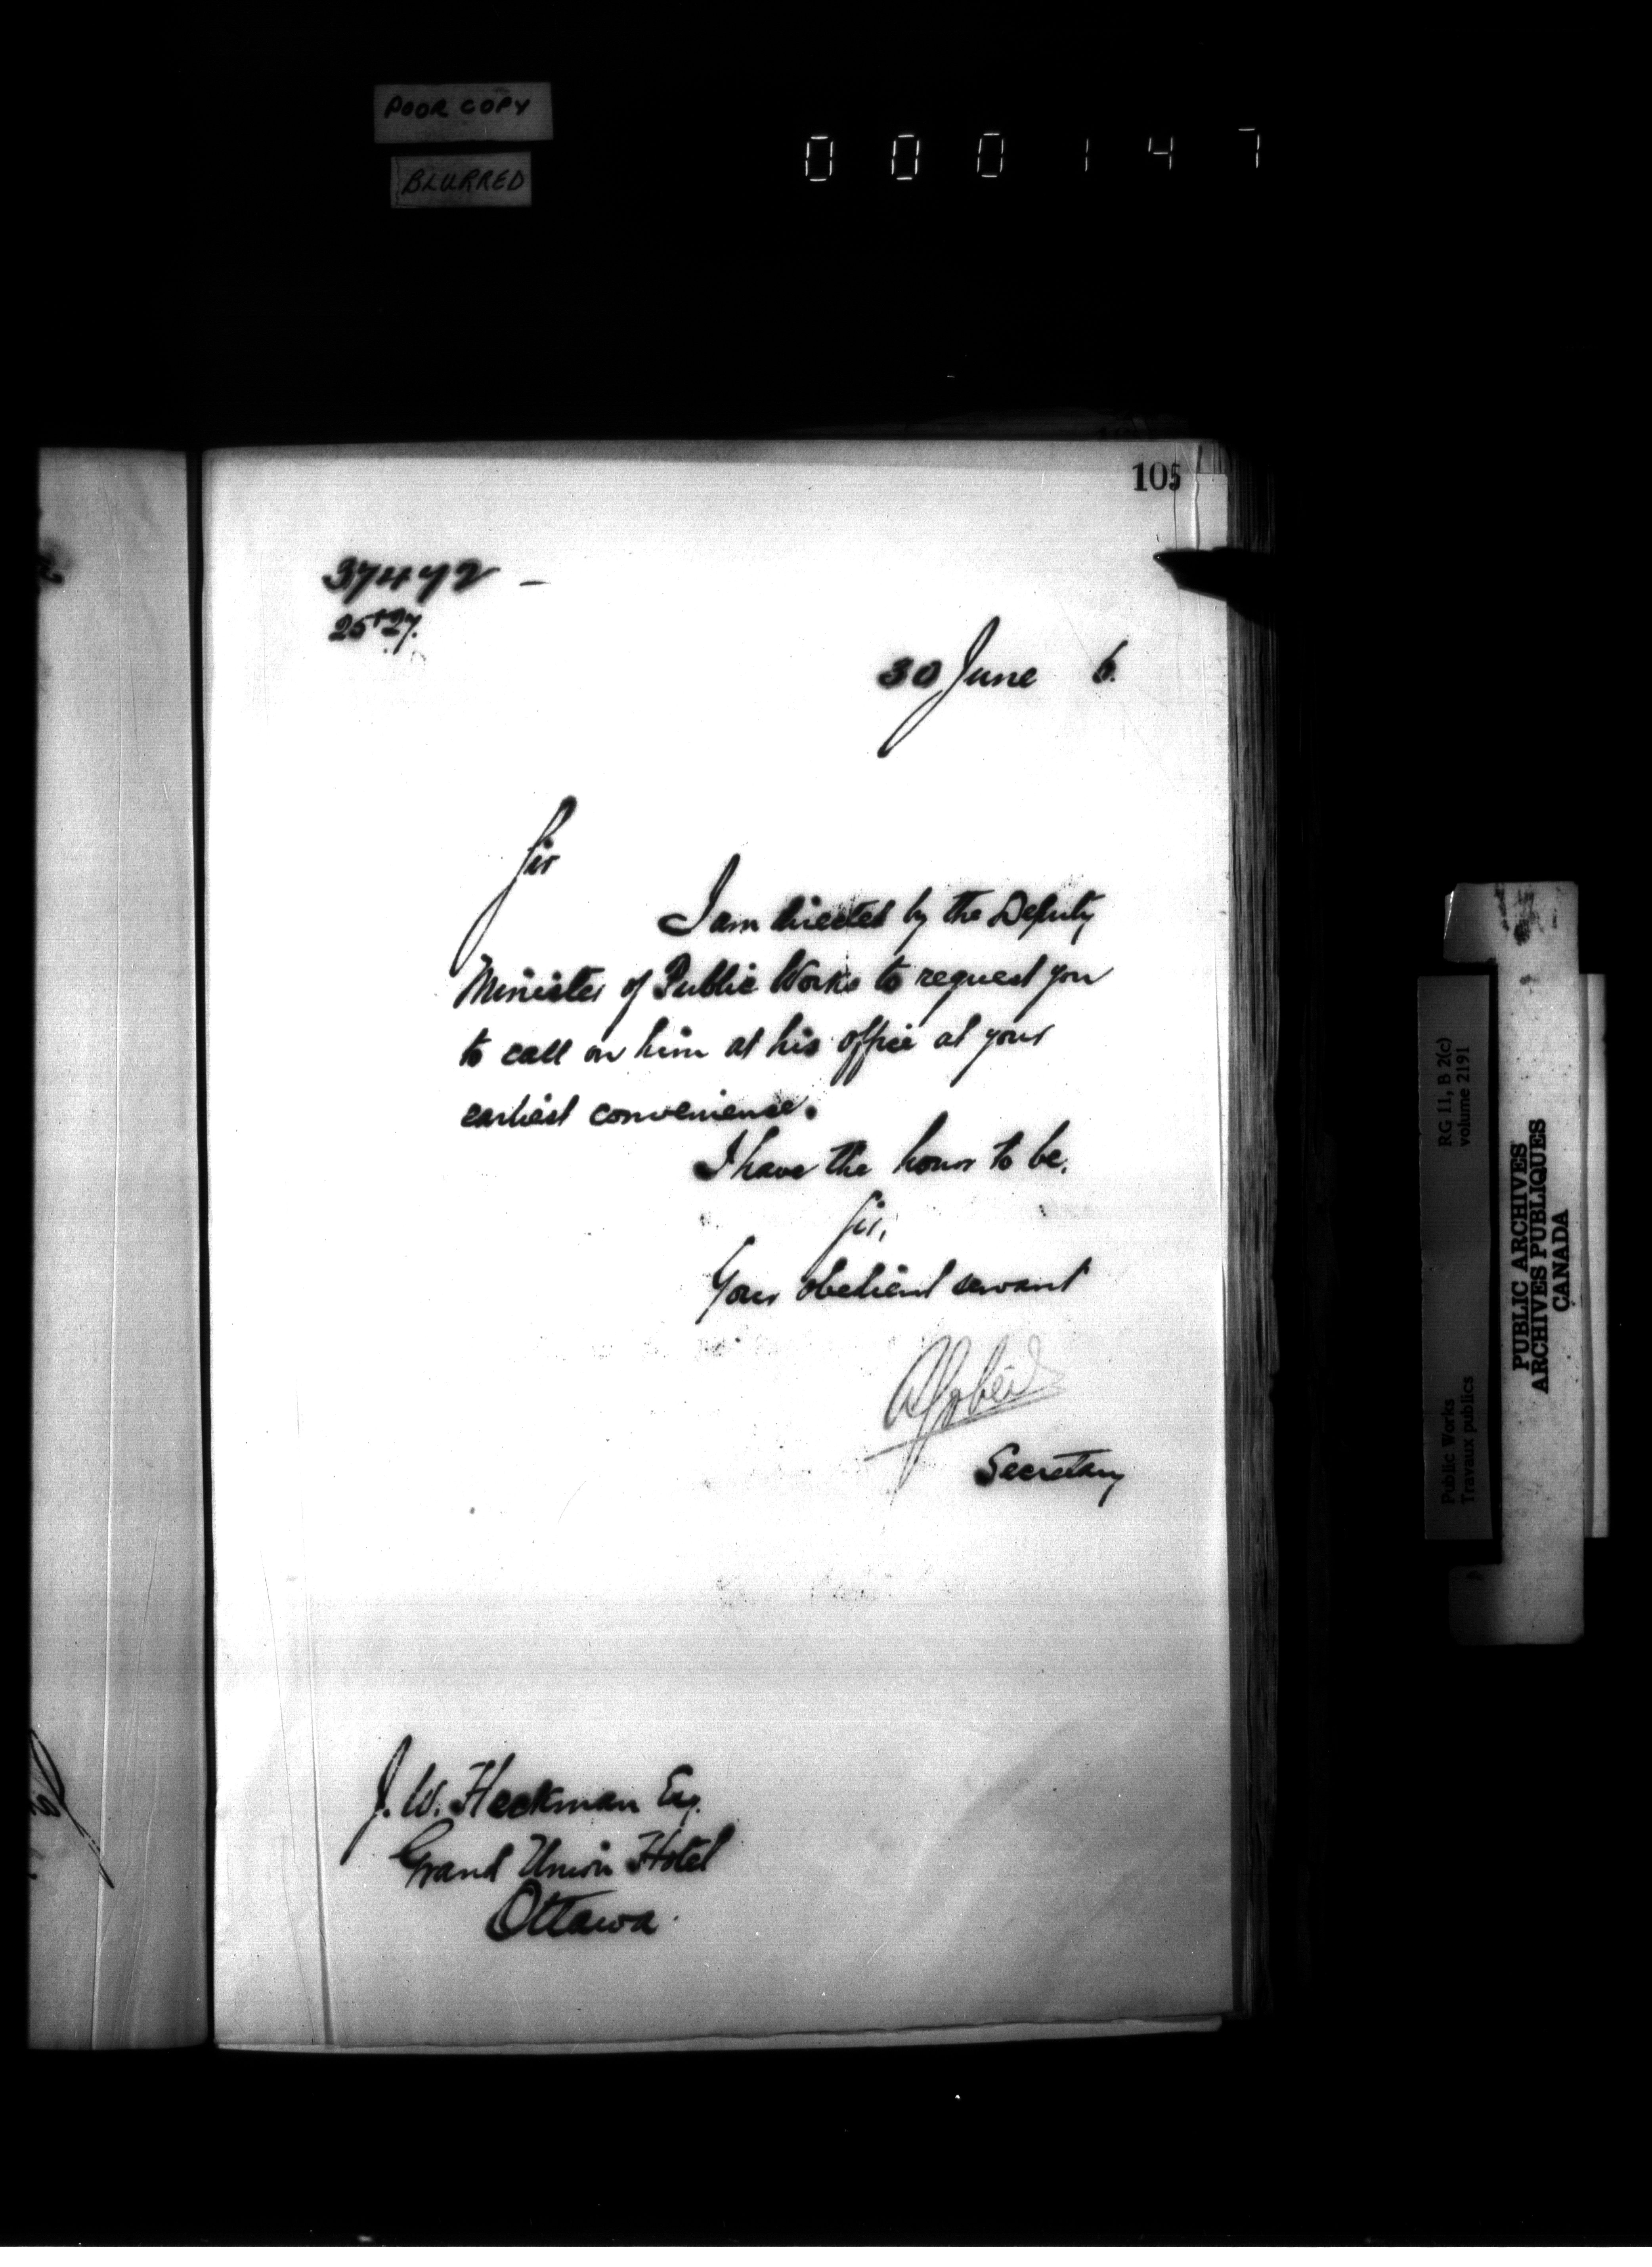 POOR COPY
BLURRED
000147
105
37472 -
25+27.
30 June 6.
Sir
I am directed by the Deputy
Minister of Public Works to request you
to call on him at his office at your
earliest convenience.
I have the honor to be,
Sir,
Your obedient servant
Secretary
J. W. Heckman Esq.
Grand Union Hotel
Ottawa.
RG 11, B 2(c)
volume 2191
Public Works
Travaux publics
PUBLIC ARCHIVES
ARCHIVES PUBLIQUES
CANADA